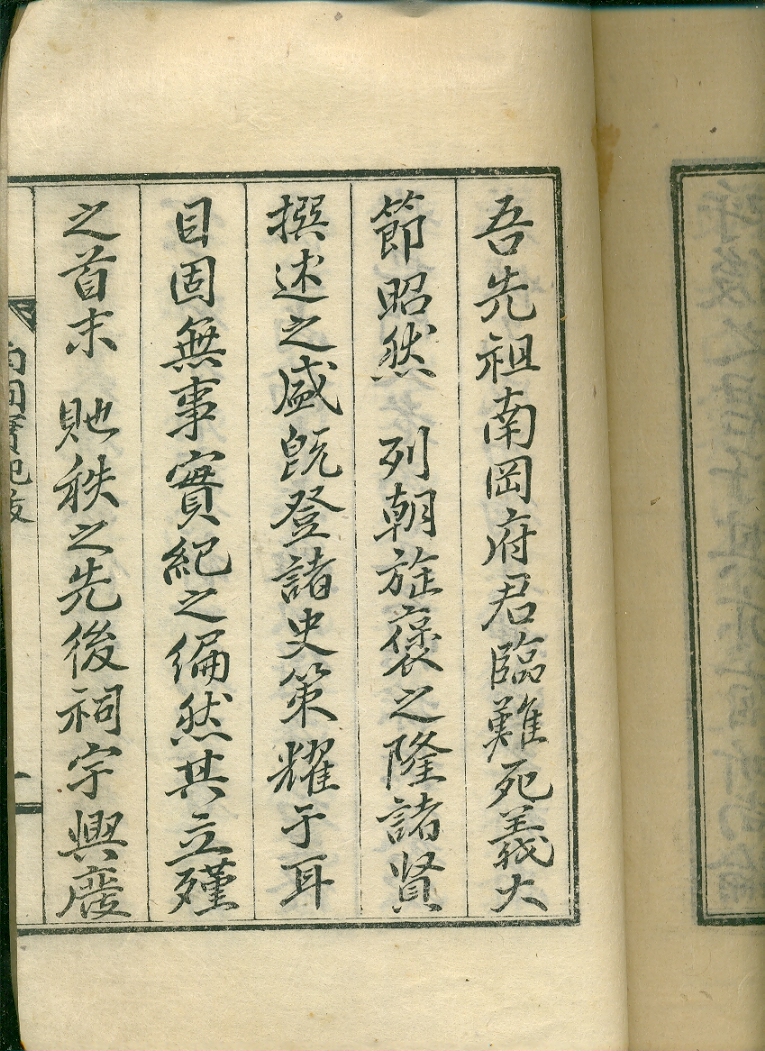 吾先祖南岡府君臨難死義大
節昭然　列朝旌褒之隆諸賢
撰述之盛旣登諸史策耀于耳
目固無事實紀之編然其立殣
之首末　貤秩之先後祠宇興廢
南岡實紀跋